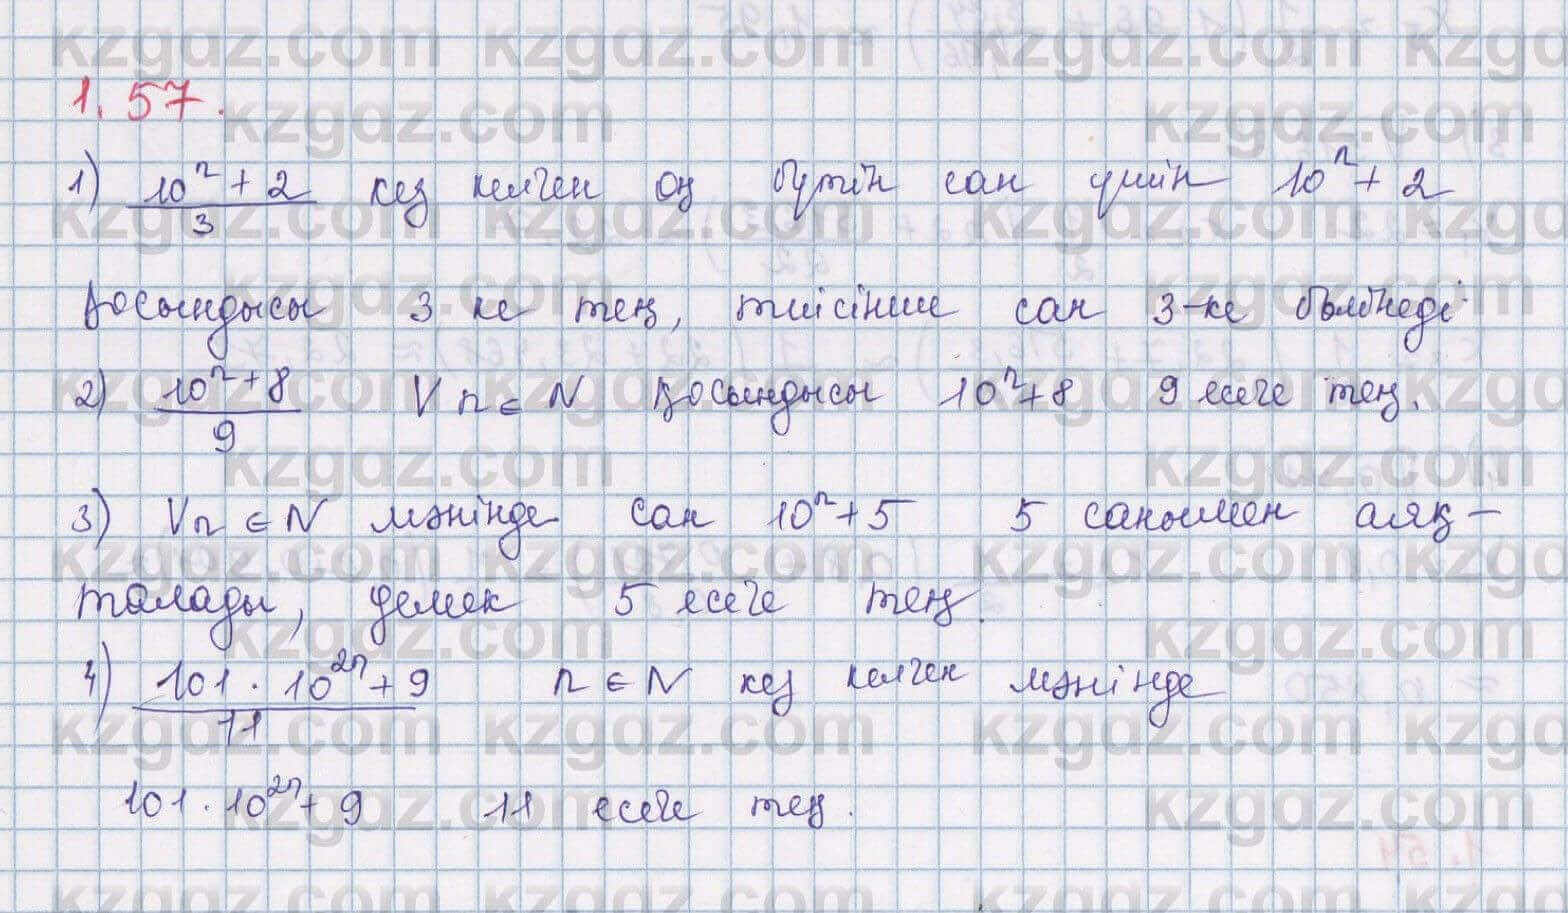 1.57.
1) (10ⁿ + 2)/3 кез келген оң бүтін сан үшін 10ⁿ + 2
қосындысы 3 ке тең, тиісінше сан 3-ке бөлінеді
2) (10ⁿ + 8)/9 ∀ n ∈ N қосындысы 10ⁿ+8 9 есеге тең.
3) ∀n ∈ N мәнінде сан 10ⁿ+5 5 санымен аяқ-
талады, демек 5 есеге тең.
4) (101 · 10²ⁿ + 9)/11 n ∈ N кез келген мәнінде
101 · 10²ⁿ + 9 11 есеге тең.
kzgdz.com